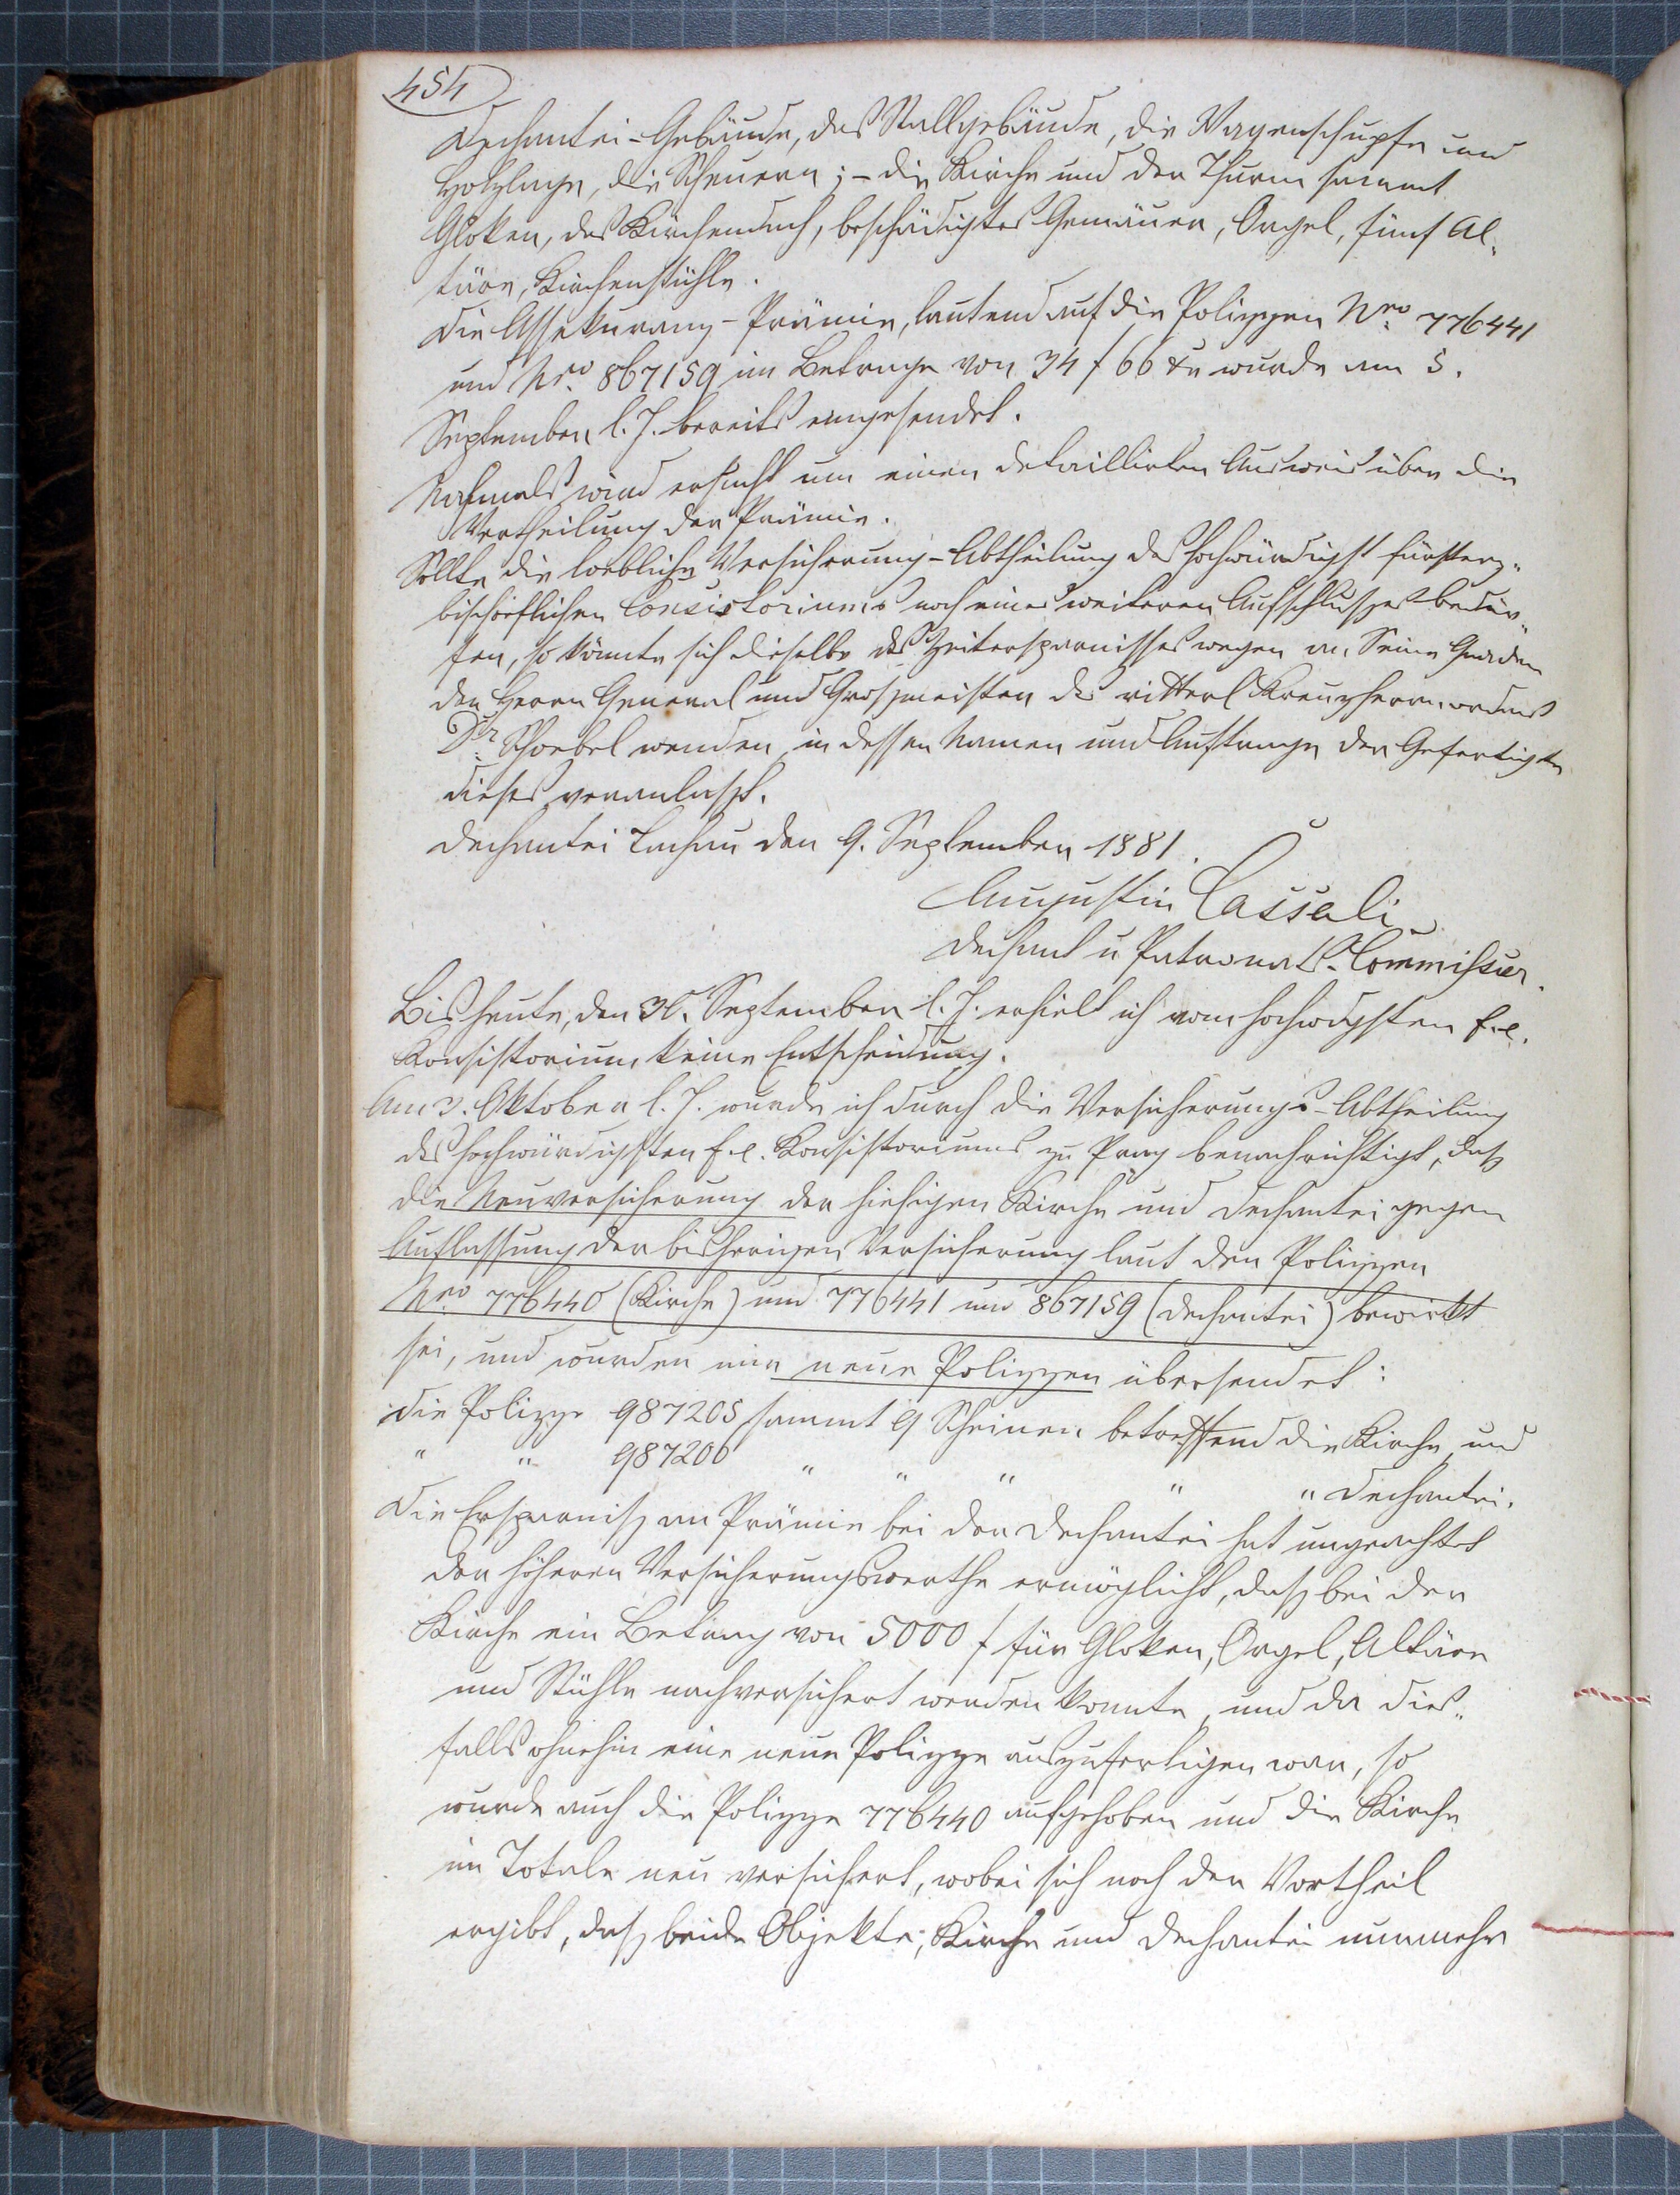 454
Dechantei-Gebäude, das Stallgebäude, die Wagenschupfe und
Holzlage, die Scheuern; - die Kirche und der Thurm sammt
Gloken, das Kirchendach, beschädigtes Gemäuer, Orgel, fünf Al„
täre, Kirchenstühle.
Die Assekuranz-Prämie, lautend auf die Polizzen Nro 776441
und Nro 867159 im Betrage von 34 f 66 kr wurde am 5.
September l. J. bereits eingesendet.
Nochmals wird ersucht um einen detaillirten Ausweis über die
Vertheilung der Prämie.
Sollte die loebliche Versicherung-Abtheilung des hochwürdigst fürsterz„
bischöflichen Consistoriums noch eines weiteren Aufschlußes bedür„
fen, so könnte sich dieselbe des Zeitersparnisses wegen an Seine Gnaden
den Herrn General und Großmeister des ritterl Kreuzherrnordens
Dr. Schoebel wenden, in dessen Namen und Auftrage der Gefertigte
dieses veranlaßt.
Dechantei Tachau den 9. September 1881.
Augustin Cassali
Dechant u Patronats-Commißär.
Bis heute, den 30. September l. J. erhielt ich vom hochwdgsten f.e.
Konsistorium keine Entscheidung.
Am 3. Oktober l. J. wurde ich durch die Versicherungs-Abtheilung
des hochwürdigsten f.e. Konsistoriums zu Prag benachrichtigt, daß
die Neuversicherung der hiesigen Kirche und Dechantei gegen
Auflassung der bisherigen Versicherung laut den Polizzen
Nro 776440 (Kirche) und 776441 und 867159 (Dechantei) bewirkt
sei, und wurden mir neue Polizzen übersendet:
die Polizze 987205 sammt 9 Scheinen betreffend die Kirche und
" " 987200 " " " " " Dechantei.
Die Ersparniß an Prämie bei der Dechantei hat ungeachtet
der höheren Versicherungswerthe ermöglicht, daß bei der
Kirche ein Betrag von 5000 f für Gloken, Orgel, Altäre
und Stühle nachversichert werden konnte, und da dies„
falls ohnehin eine neue Polizze auszufertigen war, so
wurde auch die Polizze 776440 aufgehoben und die Kirche
im Totale neu versichert, wobei sich noch der Vortheil
ergibt, daß beide Objekte, Kirche und Dechantei nunmehr